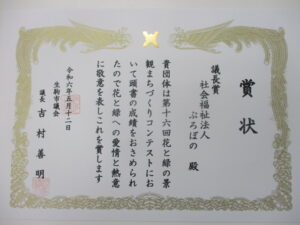 賞状
議長賞
社会福祉法人
ぷろぼの 殿
貴団体は第十六回花と緑の景
観まちづくりコンテストにお
いて頭書の成績をおさめられ
たので花と緑への愛情と熱意
に敬意を表しこれを賞します
令和六年五月十二日
生駒市議会
議長 吉村善明